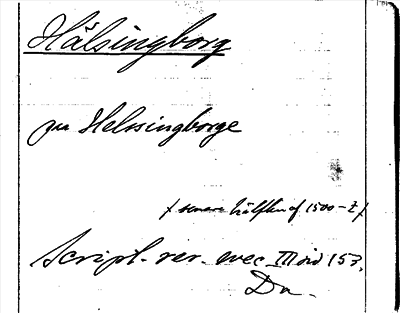 Hälsingborg
paa Helssingborge
/ senare hälften af 1500-t /
Script. rer. svec. III 153,
Da.